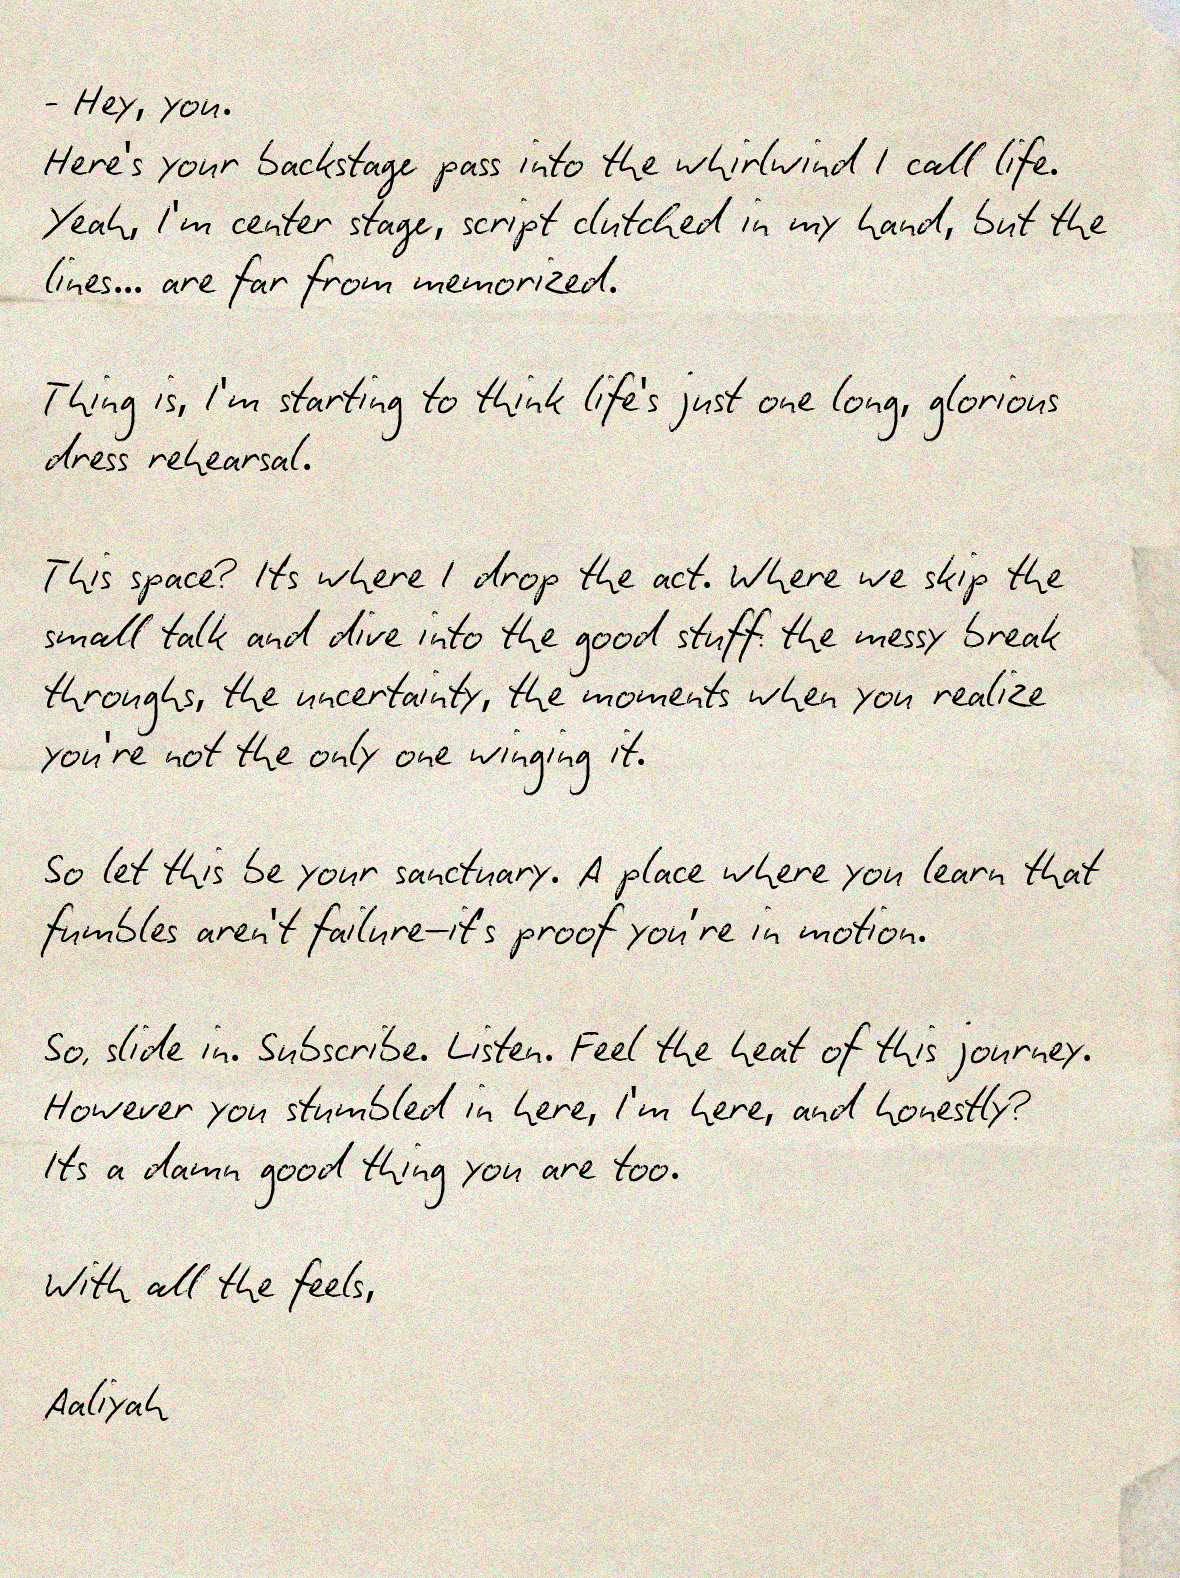 - Hey, you.
Here's your backstage pass into the whirlwind I call life.
Yeah, I'm center stage, script clutched in my hand, but the
lines... are far from memorized.
Thing is, I'm starting to think life's just one long, glorious
dress rehearsal.
This space? Its where I drop the act. Where we skip the
small talk and dive into the good stuff: the messy break
throughs, the uncertainty, the moments when you realize
you're not the only one winging it.
So let this be your sanctuary. A place where you learn that
fumbles aren't failure—it's proof you're in motion.
So, slide in. Subscribe. Listen. Feel the heat of this journey.
However you stumbled in here, I'm here, and honestly?
Its a damn good thing you are too.
With all the feels,
Aaliyah